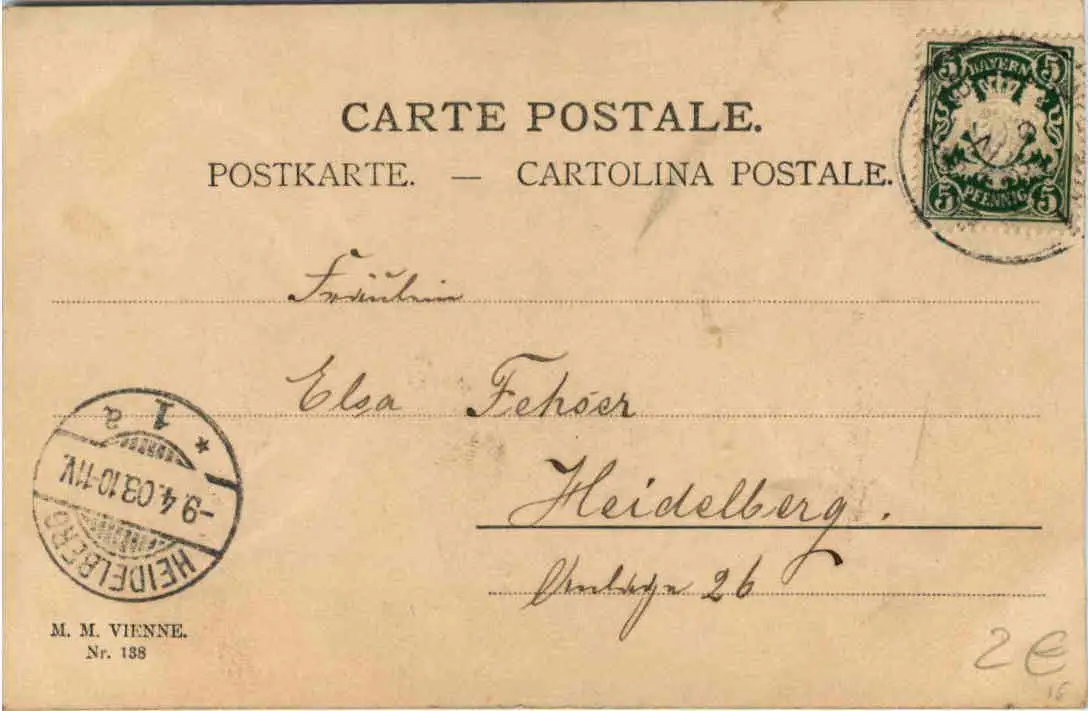 CARTE POSTALE.
POSTKARTE. — CARTOLINA POSTALE.
5 BAYERN 5
5 PFENNIG 5
Fräulein
Elsa Fehser
Heidelberg.
Anlage 26
* 1 a
-9.4.03.10-11V.
HEIDELBERG
M. M. VIENNE.
Nr. 138
2 €